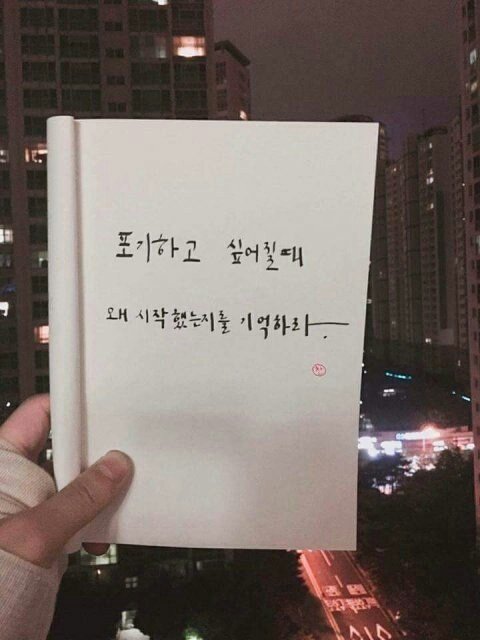 포기하고 싶어질때
왜 시작했는지를 기억하라